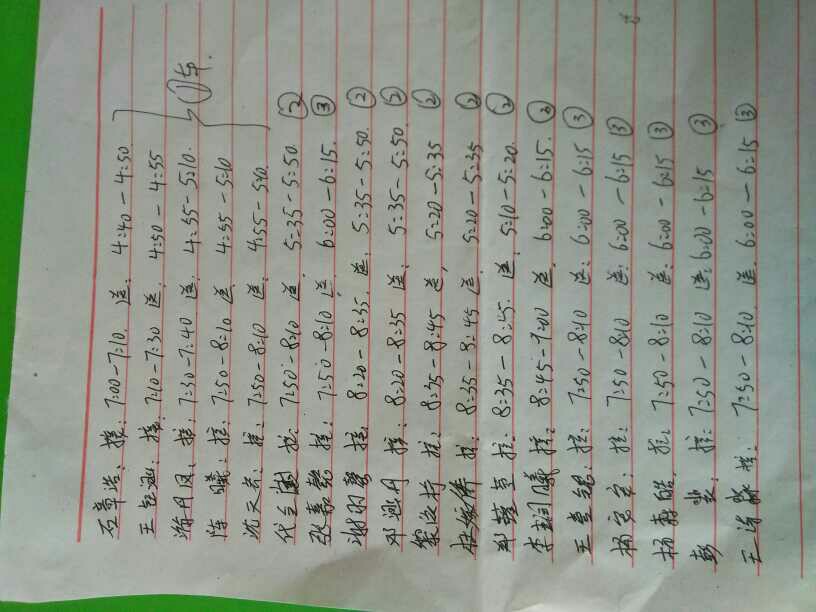 石章浩：接：7:00-7:10. 送：4:40-4:50
王 涵：接：7:10-7:30 送：4:50-4:55
丹凤：接：7:30-7:40 送：4:55-5:10.
陈曦：接：7:50-8:10 送：4:55-5:10
沈天 ：接：7:50-8:10 送：4:55-5:10.
①车
代 接：7:50-8:10 送：5:35-5:50 ②
张嘉懿 接：7:50-8:10 送：6:00-6:15. ③
谢 接：8:20-8:35. 送：5:35-5:50. ②
邓 丹 接：8:20-8:35 送：5:35-5:50. ②
黎 接：8:35-8:45 送：5:20-5:35 ②
杜 倩 接：8:35-8:45 送：5:20-5:35 ②
邓 接：8:35-8:45. 送：5:10-5:20. ②
李 曦 接：8:45-9:00 送：6:00-6:15.
王 ：接：7:50-8:10 送：6:00-6:15 ③
杨 ：接：7:50-8:10 送：6:00-6:15 ③
杨 皓. 接：7:50-8:10 送：6:00-6:15 ③
彭 ：接：7:50-8:10 送：6:00-6:15 ③
王 接：7:50-8:10. 送：6:00-6:15 ③